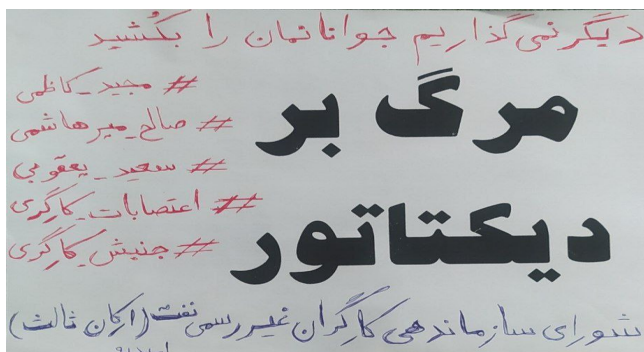 دیگر نمی‌گذاریم جوانانمان را بکُشید
مرگ بر
دیکتاتور
#مجید_کاظمی
#صالح_میرهاشمی
#سعید_یعقوبی
#اعتصابات_کارگری
#جنبش_کارگری
شورای سازماندهی کارگران غیررسمی نفت (ارکان ثالث)